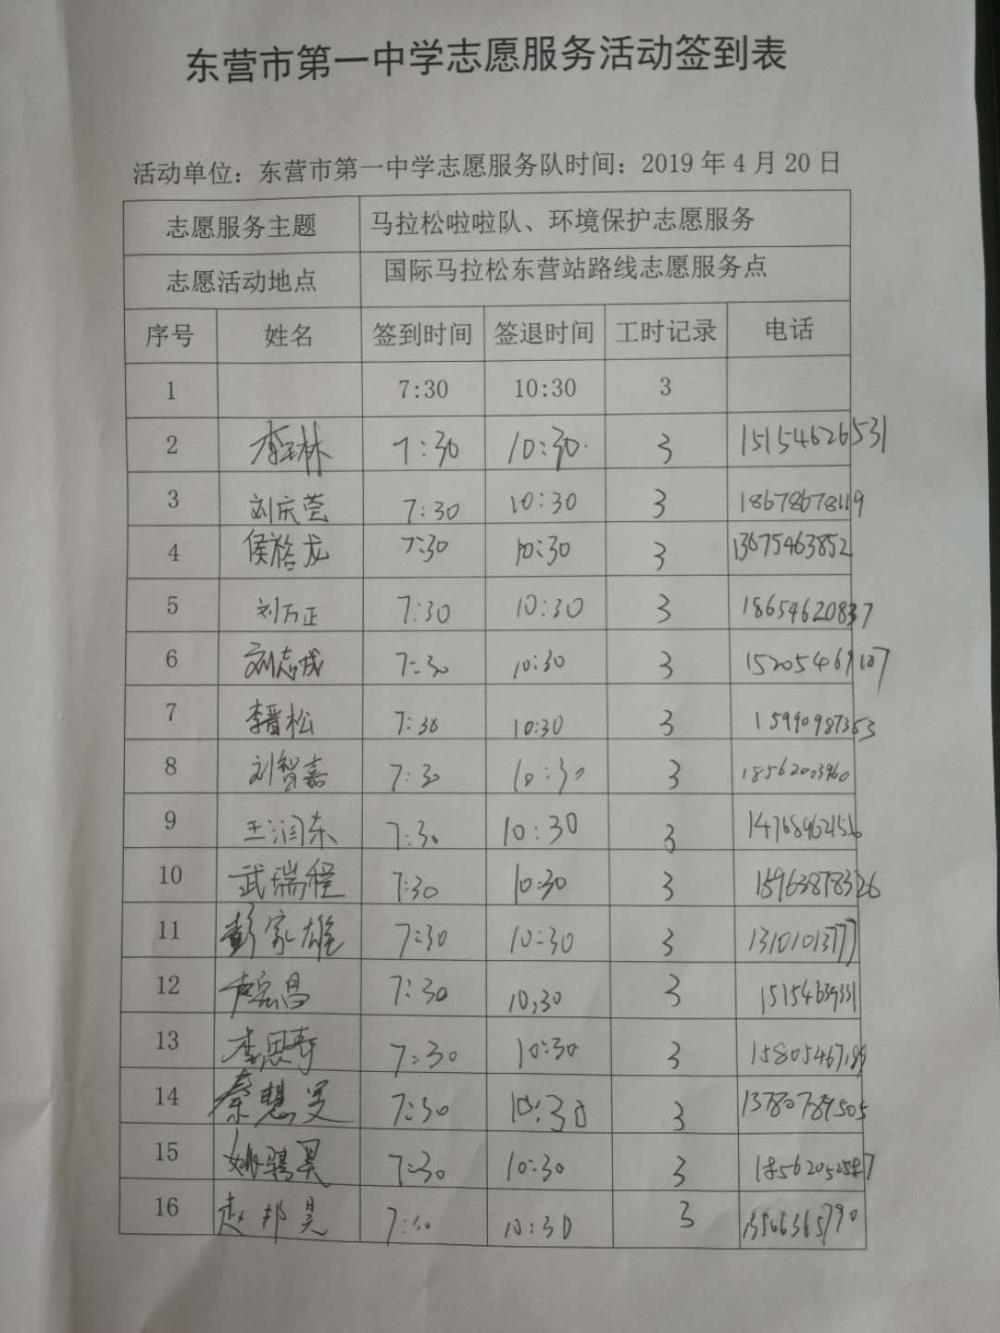 东营市第一中学志愿服务活动签到表
活动单位：东营市第一中学志愿服务队时间：2019 年 4 月 20 日
志愿服务主题 马拉松啦啦队、环境保护志愿服务
志愿活动地点 国际马拉松东营站路线志愿服务点
序号 姓名 签到时间 签退时间 工时记录 电话
1 7:30 10:30 3
2 李玉林 7:30 10:30 3 15154626531
3 刘庆莹 7:30 10:30 3 18678678119
4 7:30 10:30 3 13675463852
5 刘万正 7:30 10:30 3 18654620837
6 刘志成 7:30 10:30 3 15205469107
7 李晋松 7:30 10:30 3 15990987353
8 刘智嘉 7:30 10:30 3
9 王润东 7:30 10:30 3
10 武瑞程 7:30 10:30 3 15963878326
11 彭家雄 7:30 10:30 3 13101013777
12 7:30 10:30 3 15154639331
13 李思奇 7:30 10:30 3
14 秦慧旻 7:30 10:30 3 13780789505
15 姚骐昊 7:30 10:30 3
16 赵邦昊 7:30 10:30 3